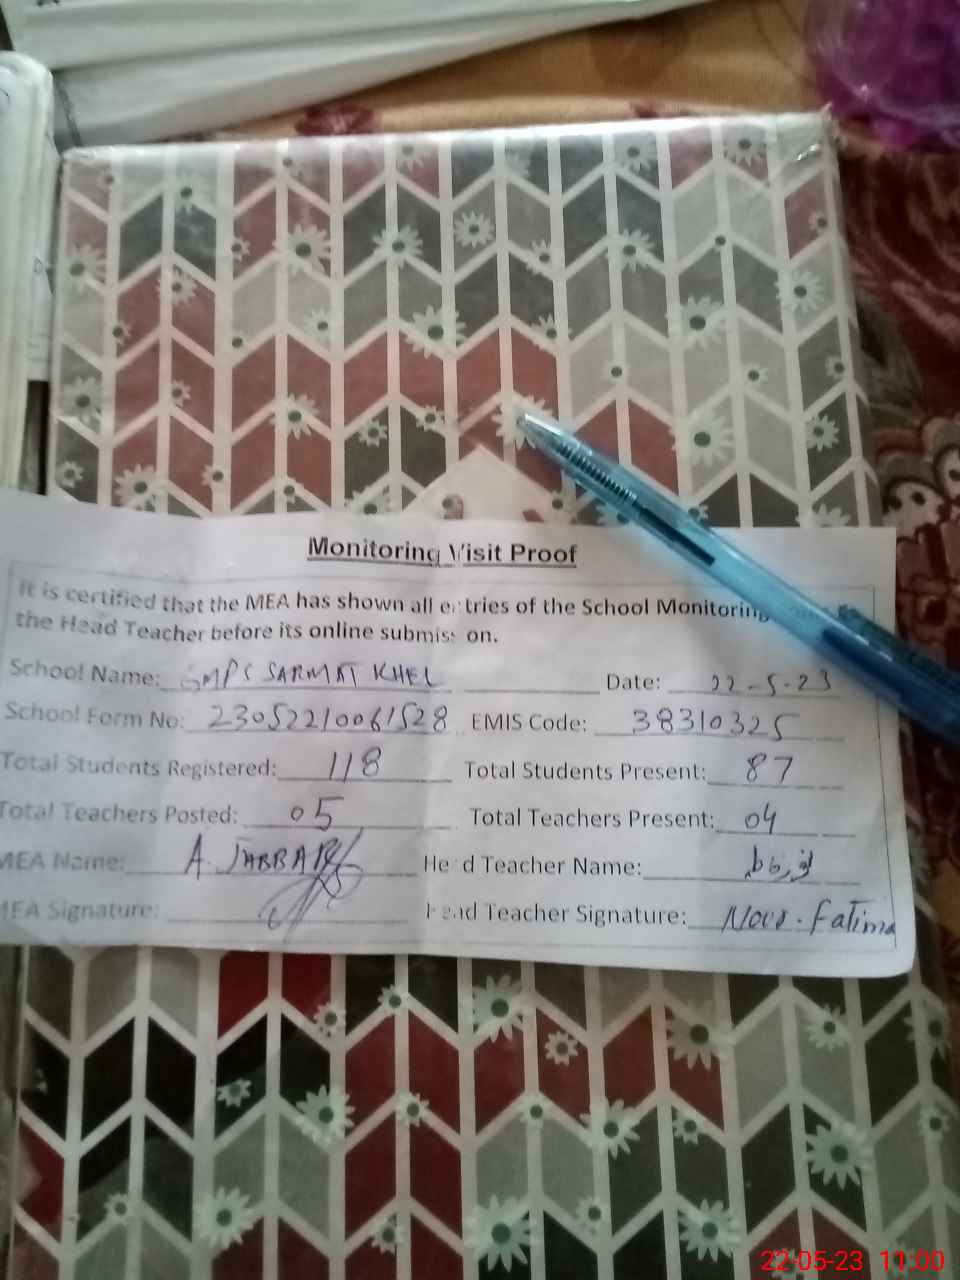 Monitoring Visit Proof
It is certified that the MEA has shown all entries of the School Monitoring
the Head Teacher before its online submission.
School Name: GMPS SARMAT KHEL Date: 22-5-23
School Form No: 23052210061528 EMIS Code: 38310325
Total Students Registered: 118 Total Students Present: 87
Total Teachers Posted: 05 Total Teachers Present: 04
MEA Name: A. JABBAR Head Teacher Name:
MEA Signature: Head Teacher Signature: Noor. Fatima
22-05-23 11:00